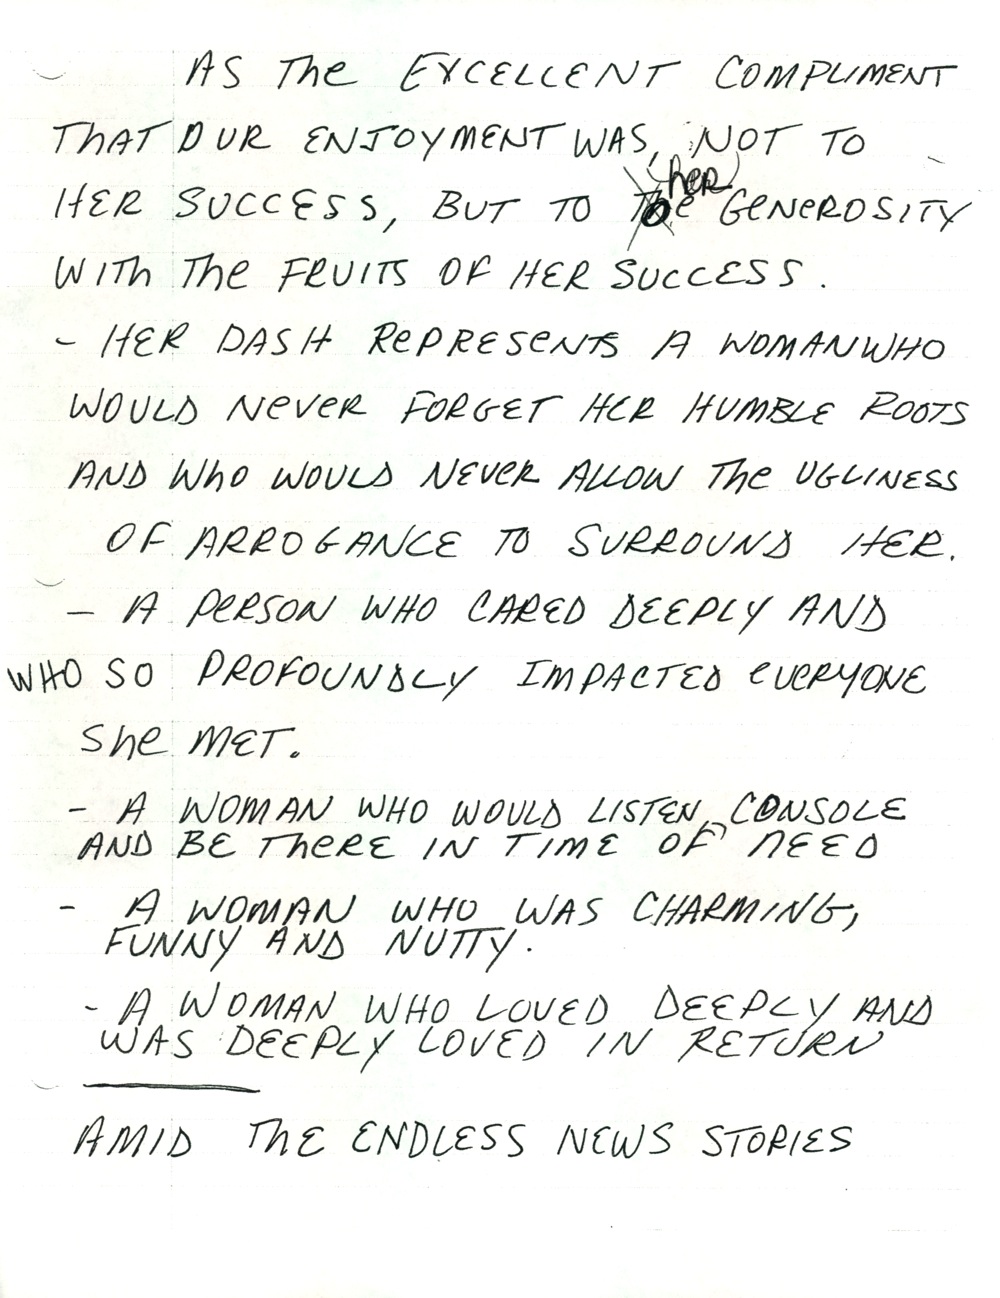 AS The EXCELLENT COMPLIMENT
THAT OUR ENJOYMENT WAS, NOT TO
HER SUCCESS, BUT TO her GENEROSITY
WITH The FRUITS OF HER SUCCESS.
- HER DASH REPRESENTS A WOMAN WHO
WOULD NEVER FORGET HER HUMBLE ROOTS
AND WHO WOULD NEVER ALLOW The UGLINESS
OF ARROGANCE TO SURROUND HER.
- A PERSON WHO CARED DEEPLY AND
WHO SO PROFOUNDLY IMPACTED EVERYONE
She MET.
- A WOMAN WHO WOULD LISTEN, CONSOLE
AND BE THERE IN TIME OF NEED
- A WOMAN WHO WAS CHARMING,
FUNNY AND NUTTY.
- A WOMAN WHO LOVED DEEPLY AND
WAS DEEPLY LOVED IN RETURN
AMID THE ENDLESS NEWS STORIES